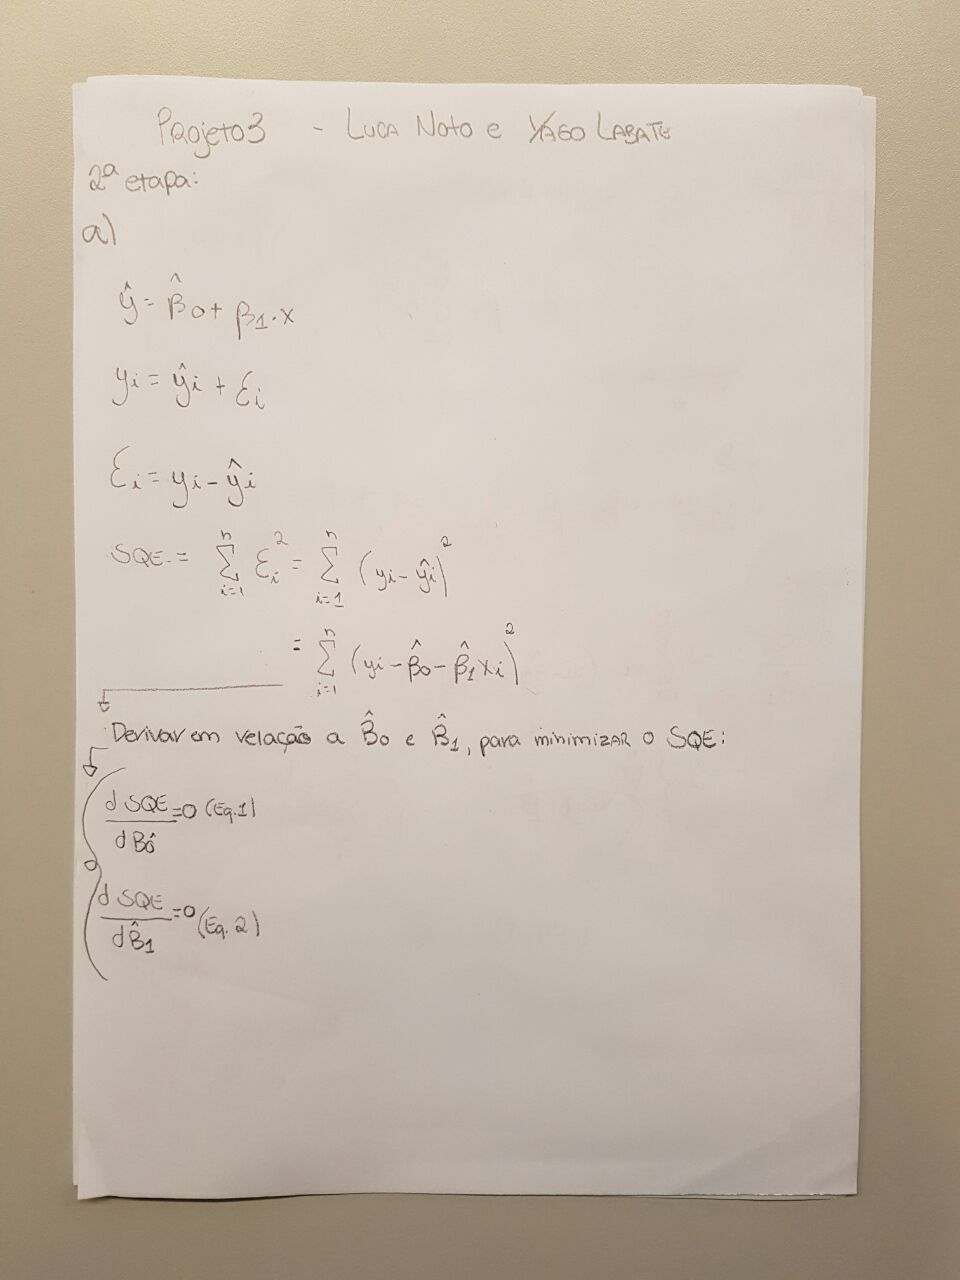 Projeto 3 - Luca Noto e Yago Labate
2ª etapa:
a)
ŷ = β̂0 + β1·x
yi = ŷi + Ɛi
Ɛi = yi - ŷi
SQE = Σ(i=1, n) Ɛi² = Σ(i=1, n) (yi - ŷi)²
= Σ(i=1, n) (yi - β̂0 - β̂1xi)²
Derivar em relação a β̂0 e β̂1, para minimizar o SQE:
dSQE/dβ̂0 = 0 (Eq.1)
dSQE/dβ̂1 = 0 (Eq.2)